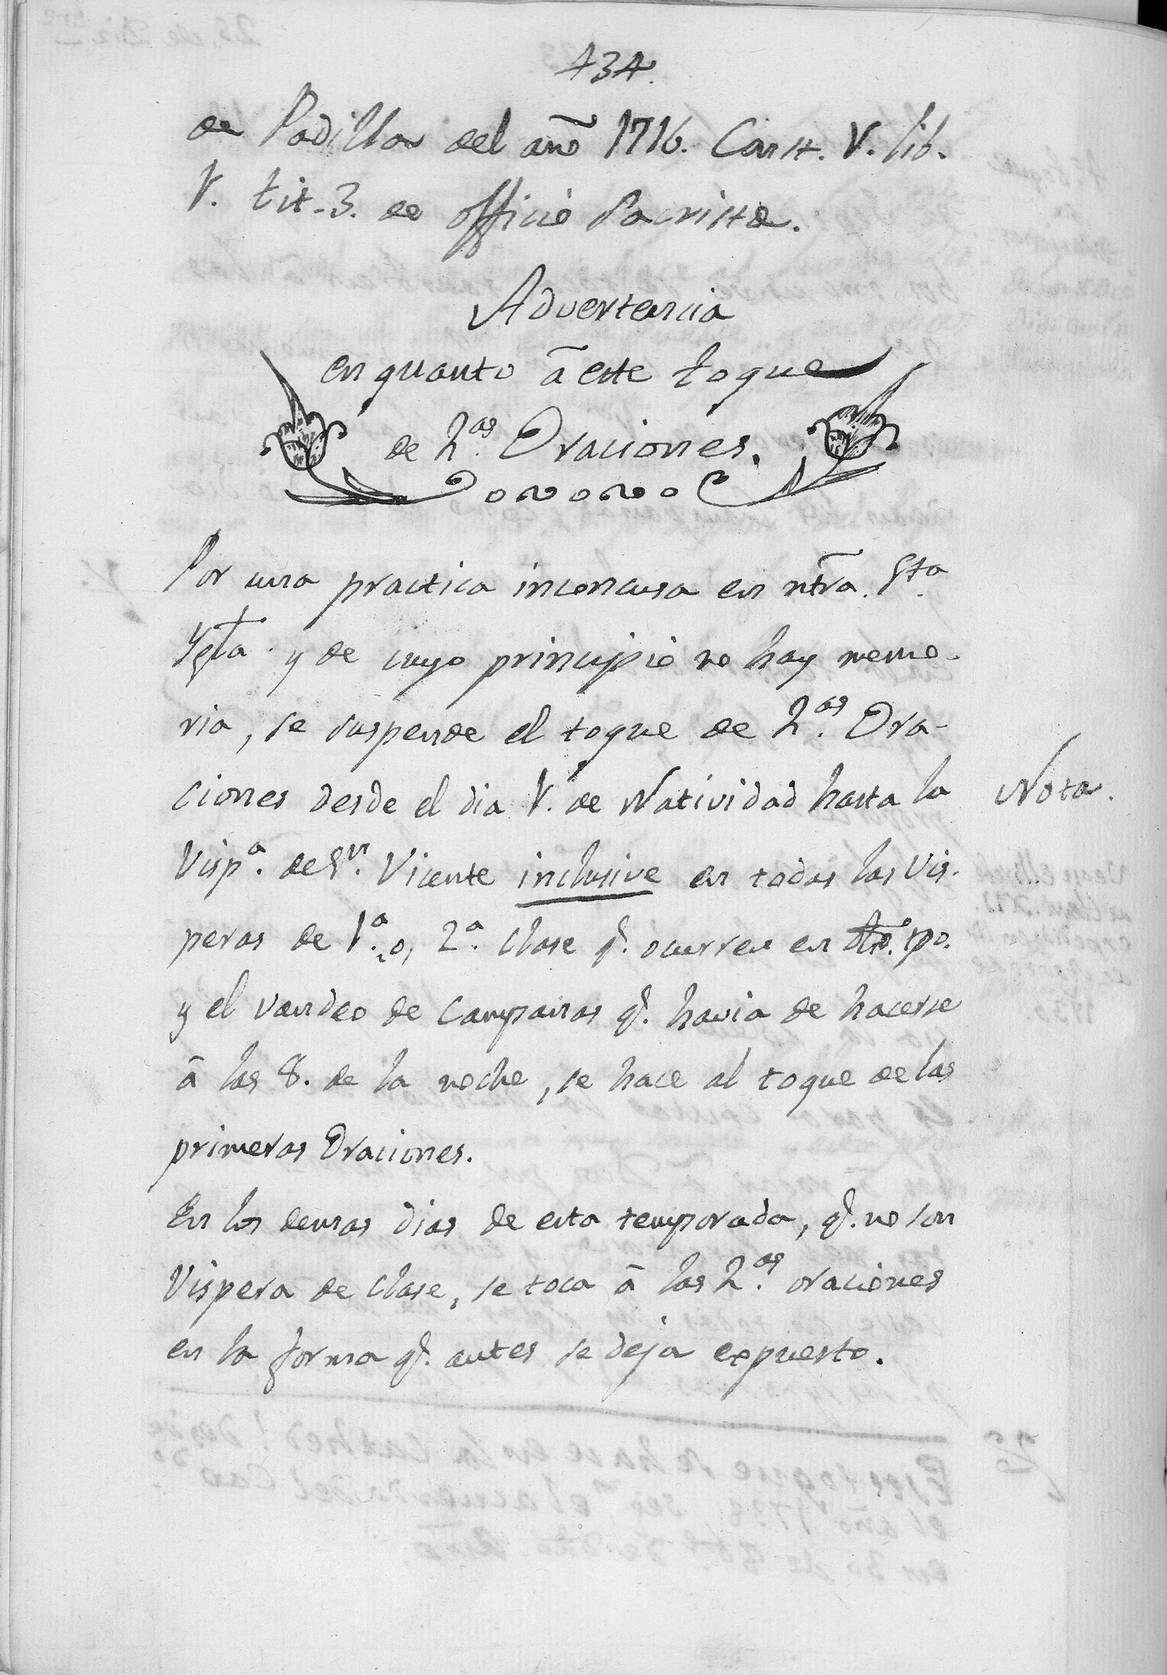 434.
de Padilla del año 1716. Const. V. lib.
V. tit. 3. de officio Sacristæ.
Advertencia
en quanto â este toque
de 2.as Oraciones.
Por una practica inconcusa en ntra. Sta.
Ygla. y de cuyo principio no hay memo-
ria, se suspende el toque de 2.as Ora-
ciones desde el dia V. de Natividad hasta la
Nota.
Visp.a de Sn. Vicente inclusive en todas las Vis-
peras de 1.a o, 2.a clase q. ocurren en dho. tpo.
y el vandeo de Campanas q. havia de hacerse
â las 8. de la noche, se hace al toque de las
primeras Oraciones.
En los demas dias de esta temporada, q. no son
Vispera de clase, se toca â las 2.as oraciones
en la forma q. antes se deja expuesto.